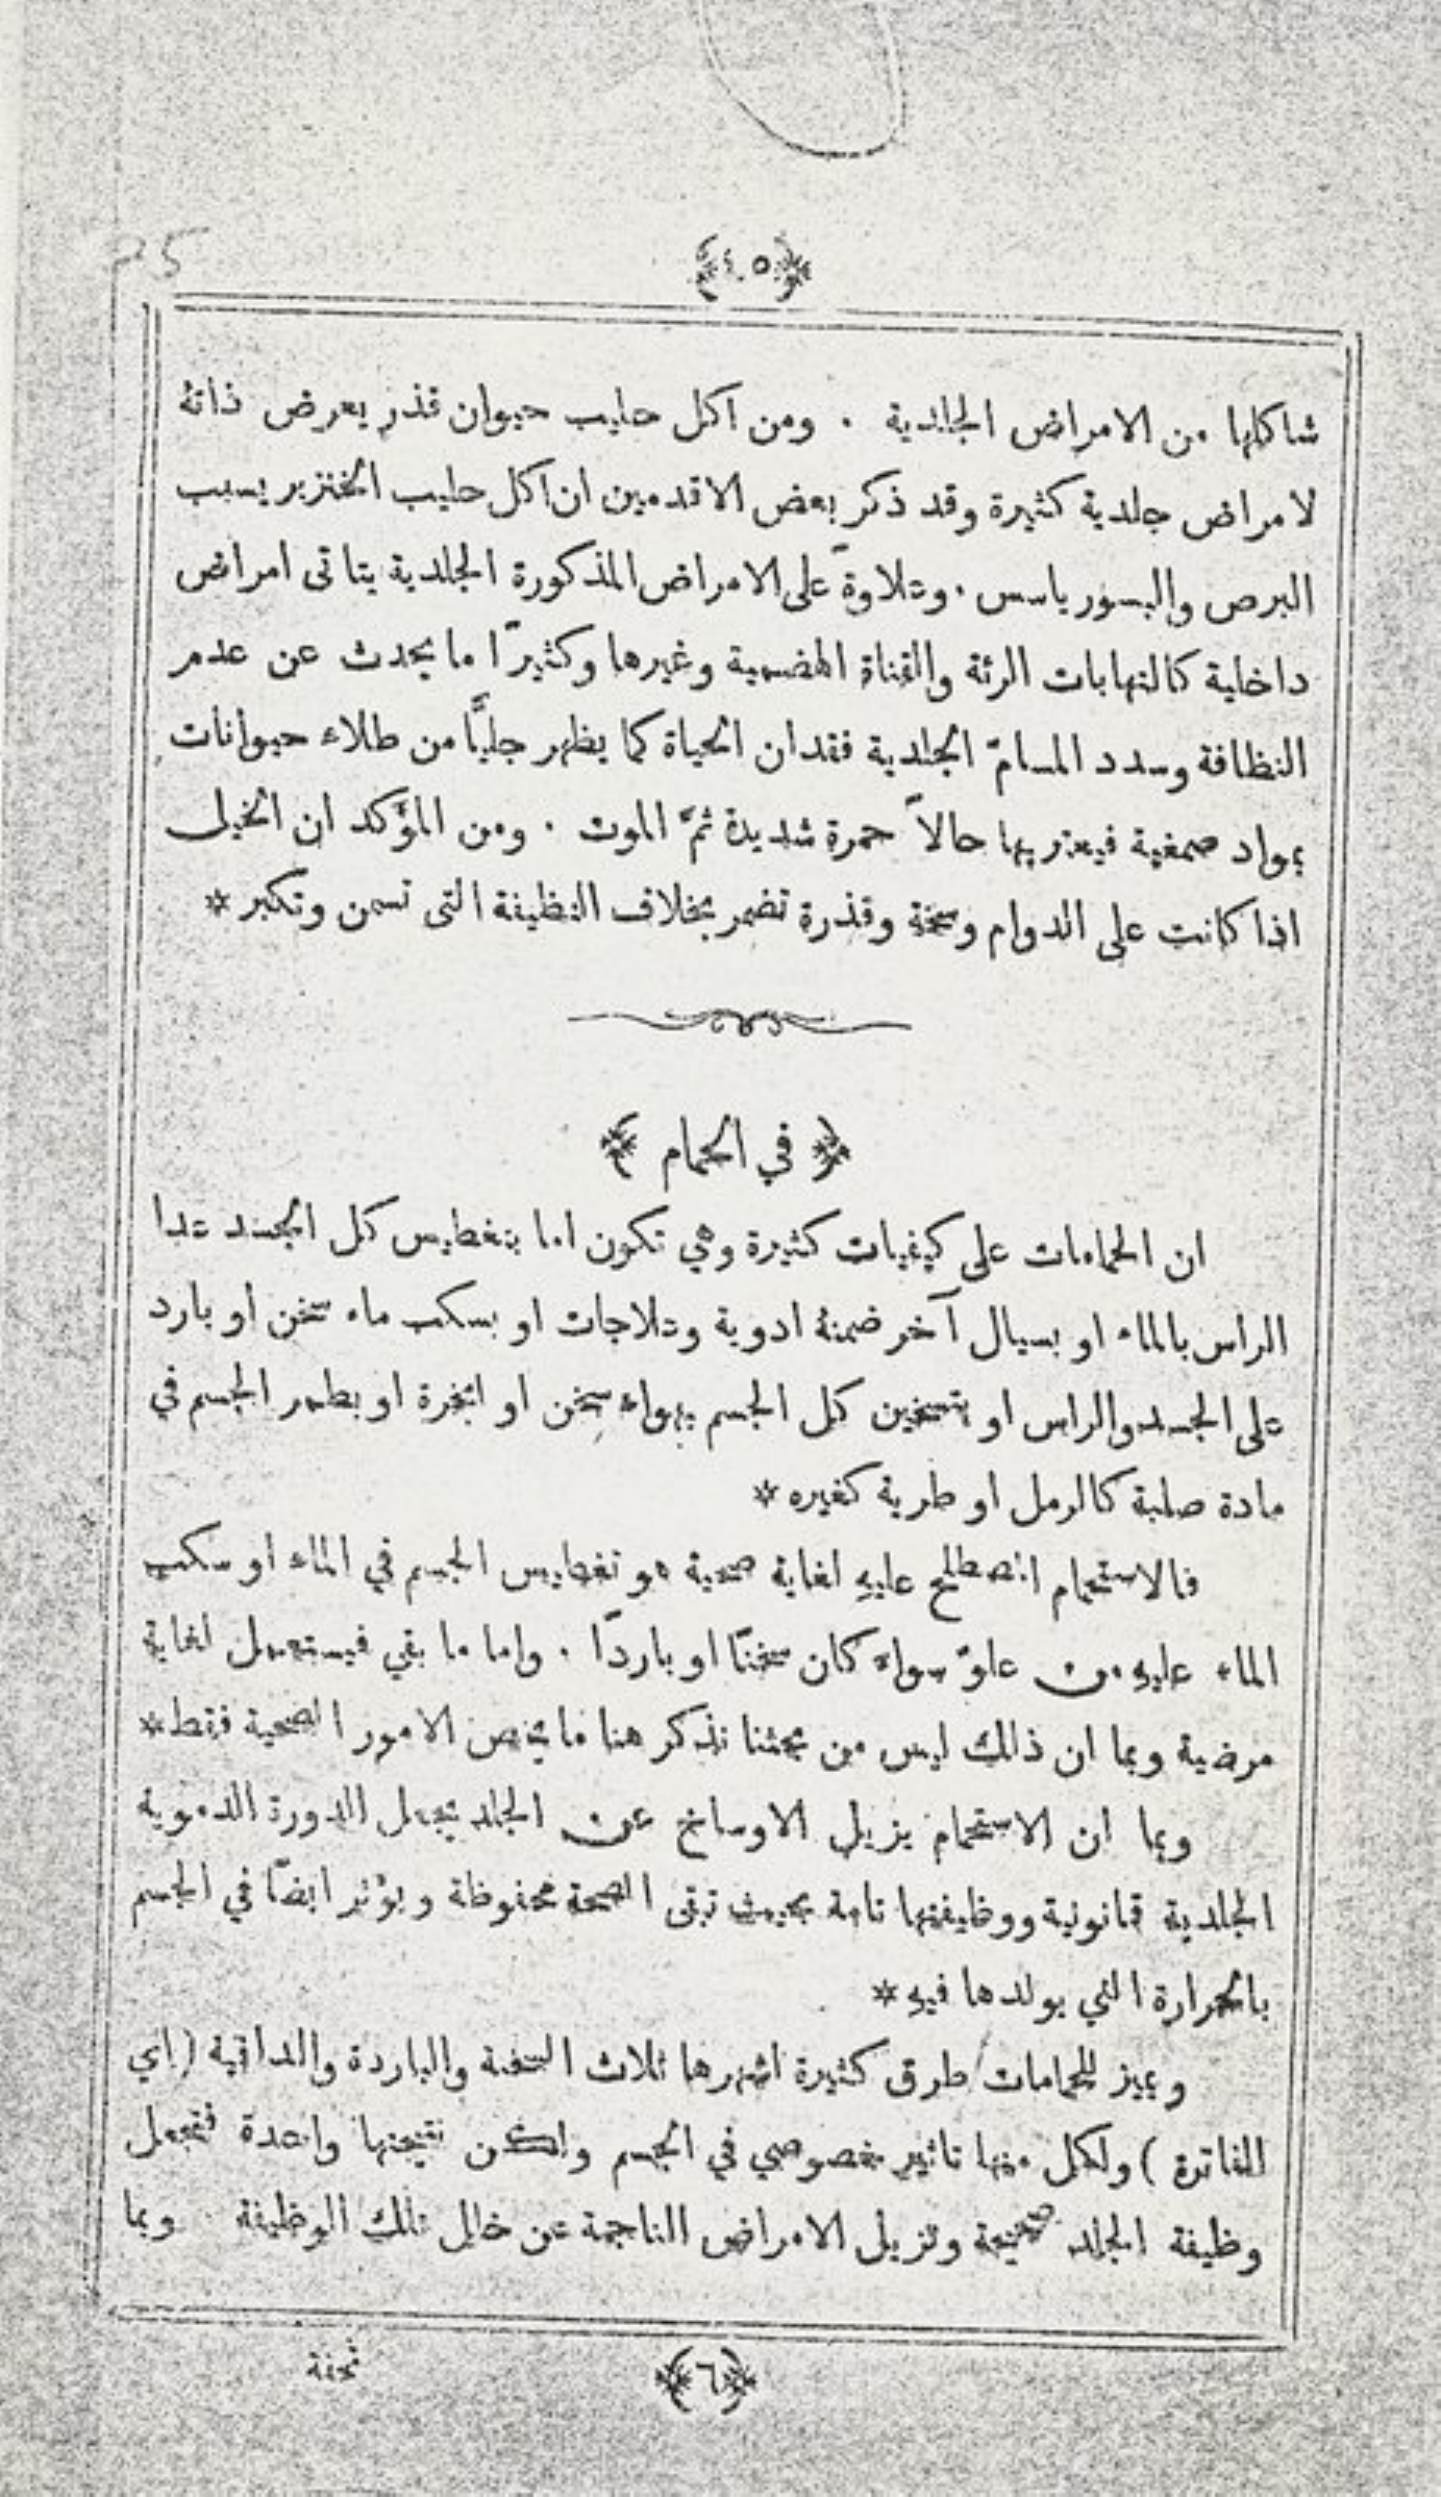 ﴿٤٥﴾
شاكلها من الامراض الجلدية . ومن اكل حليب حيوان قذر يعرض ذاتهُ
لامراض جلدية كثيرة وقد ذكر بعض الاقدمين ان اكل حليب الخنزير يسبب
البرص والبسورياسس . وعلاوةً على الامراض المذكورة الجلدية يتاتى امراض
داخلية كالتهابات الرئة والقناة الهضمية وغيرها وكثيرًا ما يحدث عن عدم
النظافة وسدد المسامّ الجلدية فقدان الحياة كما يظهر جليًّا من طلاء حيوانات
بمواد صمغية فيعتريها حالاً حمرة شديدة ثمَّ الموت . ومن المؤَكد ان الخيل
اذا كانت على الدوام وسخة وقذرة تضمر بخلاف النظيفة التى تسمن وتكبر *
﴿ في الحمام ﴾
ان الحمامات على كيفيات كثيرة وهي تكون اما بتغطيس كل الجسد عدا
الراس بالماء او بسيال آخر ضمنهُ ادوية وعلاجات او بسكب ماء سخن او بارد
على الجسد والراس او بتسخين كل الجسم بهواء سخن او ابخرة او بطمر الجسم في
مادة صلبة كالرمل او طرية كغيره *
فالاستحمام المصطلح عليهِ لغاية صحية هو تغطيس الجسم في الماء او سكب
الماء عليهِ من علوّ سواء كان سخنًا او باردًا . واما ما بقي فيستعمل لغاية
مرضية وبما ان ذالك ليس من بحثنا نذكر هنا ما يخص الامور الصحية فقط *
وبما ان الاستحمام يزيل الاوساخ عن الجلد يجعل الدورة الدموية
الجلدية قانونية ووظيفتها تامة بحيث تبقى الصحة محفوظة ويؤثر ايضًا في الجسم
بالحرارة التي يولدها فيهِ *
ويميز للحمامات طرق كثيرة اشهرها ثلاث السخنة والباردة والدافية (اي
الفاترة) ولكل منها تاثير خصوصي في الجسم ولكن نتيجتها واحدة فتجعل
وظيفة الجلد صحيحة وتزيل الامراض الناجمة عن خلل تلك الوظيفة وبما
﴿٦﴾
تحفة